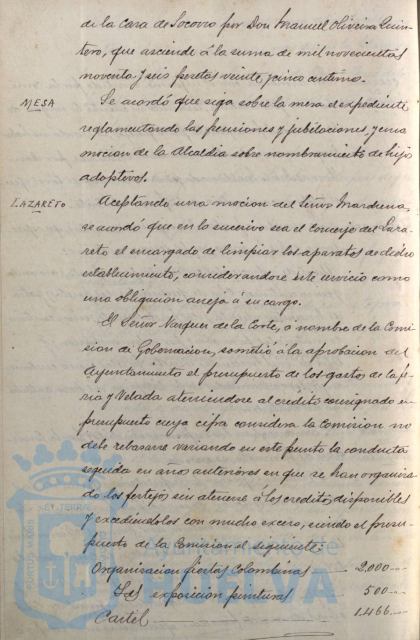 de la Casa de Socorro por Don Manuel Oliveira Quin-
tero, que asciende á la suma de mil novecientas
noventa y seis pesetas veinte y cinco céntimos.
MESA
Se acordó que siga sobre la mesa el expediente
reglamentando las pensiones y jubilaciones, y una
mocion de la Alcaldia sobre nombramiento de hijos
adoptivos.
LAZARETO
Aceptando una mocion del Señor
se acordó que en lo sucesivo sea el Conserje del Laza-
reto el encargado de limpiar los aparatos de dicho
establecimiento, considerandose este servicio como
una obligacion aneja á su cargo.
El Señor Vazquez de la Corte, á nombre de la Comi-
sion de Gobernacion, sometió á la aprobacion del
Ayuntamiento el presupuesto de los gastos de la fe-
ria y Velada ateniendose al crédito consignado en
presupuesto cuya cifra considera la Comision no
debe rebasarse variando en este punto la conducta
seguida en años anteriores en que se han organiza-
do los festejos sin atenerse á los creditos disponibles
y excediendolos con mucho exceso, siendo el presu-
puesto de la Comision el siguiente:
Organizacion fiestas Colombinas 2,000
Id exposicion pinturas 500
Cartel 1.466
HUELVA